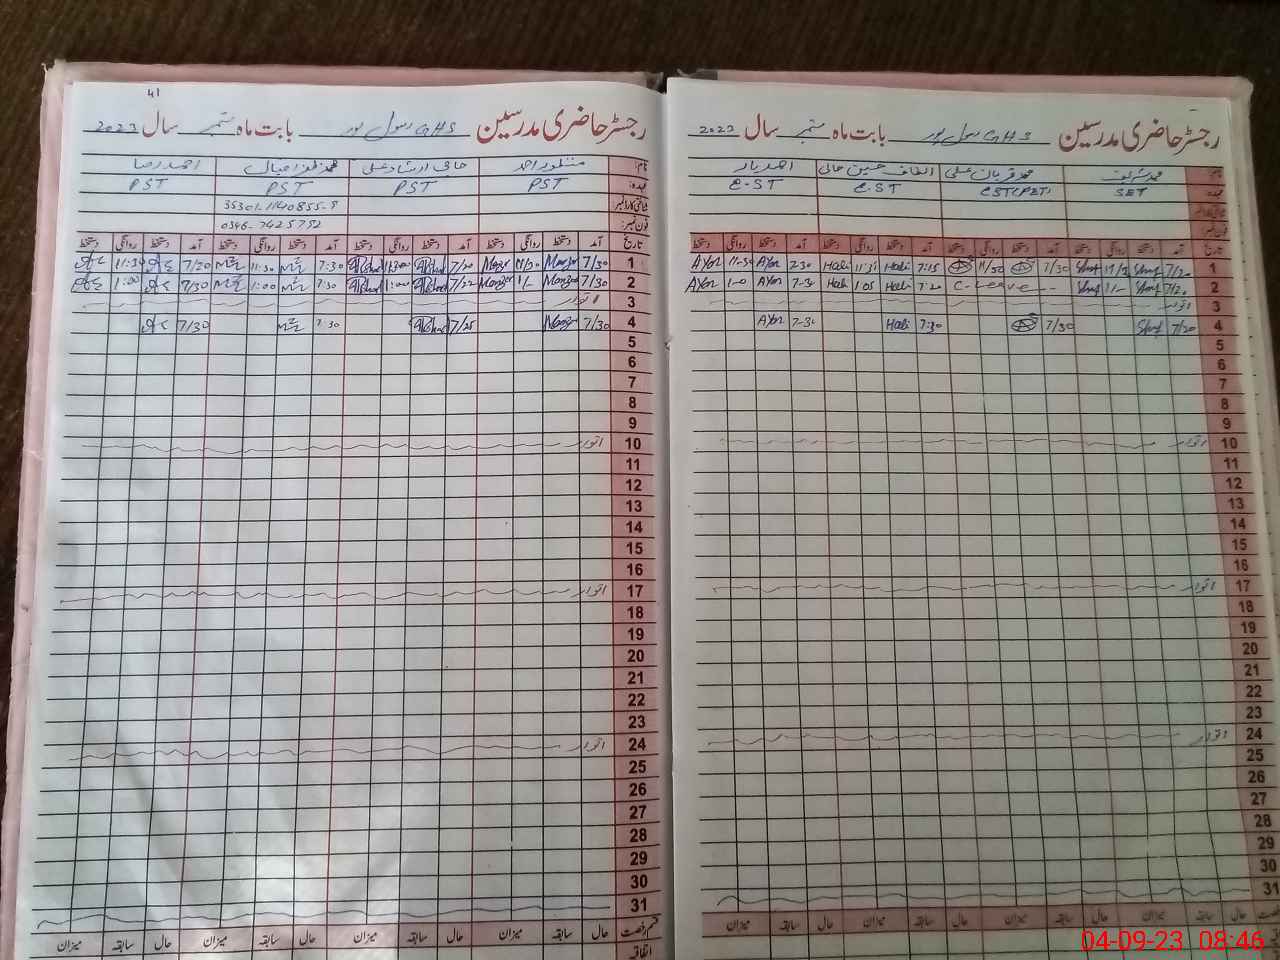 رجسٹر حاضری مدرسین GHS رسول پور بابت ماہ ستمبر سال 2023
نام: محمد شریف محمد قربان علی الطاف حسین حالی احمد یار
عہدہ: SET EST(PET) E.ST E-ST
شناختی کارڈ نمبر
فون نمبر:
تاریخ آمد دستخط روانگی دستخط آمد دستخط روانگی دستخط آمد دستخط روانگی دستخط آمد دستخط روانگی دستخط
1 7/20 11/30 7/30 11/30 Hali 7:15 Hali 11:31 Hali 7-30 11-30
2 7/20 C-Leave Hali 7:20 Hali 1:05 Hali 7-30 1-0
3 اتوار
4 7/20 7/30 Hali 7:30 7-30
5
6
7
8
9
10 اتوار
11
12
13
14
15
16
17 اتوار
18
19
20
21
22
23
24 اتوار
25
26
27
28
29
30
31
حال سابقہ میزان حال سابقہ میزان حال سابقہ میزان حال سابقہ میزان
41
رجسٹر حاضری مدرسین GHS رسول پور بابت ماہ ستمبر سال 2023
نام: منظور احمد حافی ارشاد علی محمد ظفر اقبال احمد رضا
عہدہ: PST PST PST PST
شناختی کارڈ نمبر 35301-1140855-9
فون نمبر: 0346-7425752
تاریخ آمد دستخط روانگی دستخط آمد دستخط روانگی دستخط آمد دستخط روانگی دستخط آمد دستخط روانگی دستخط
1 7/30 11/30 7/20 11:30 7:30 11:30 7/30 11:30
2 7/30 1/- 7/22 1:00 7:30 1:00 7/30 1:00
3 اتوار
4 7/30 7/25 7:30 7/30
5
6
7
8
9
10 اتوار
11
12
13
14
15
16
17 اتوار
18
19
20
21
22
23
24 اتوار
25
26
27
28
29
30
31
قسم رخصت حال سابقہ میزان حال سابقہ میزان حال سابقہ میزان حال سابقہ میزان
اتفاقیہ
04-09-23 08:46